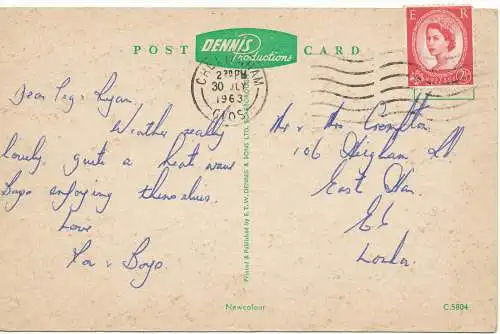 POST CARD
DENNIS
Productions
CHELTENHAM
2 30 PM
30 JLY
1963
GLOS
E R
2½D 2½D
Dear Peg &
Weather really
lovely, quite a heat wave
Boys enjoying themselves.
Love
& Boys
Mr & Mrs Crompton
106 Higham Rd.
East Ham
E6
London
Printed & Published by E.T.W. DENNIS & SONS LTD.
Newcolour
C.5804